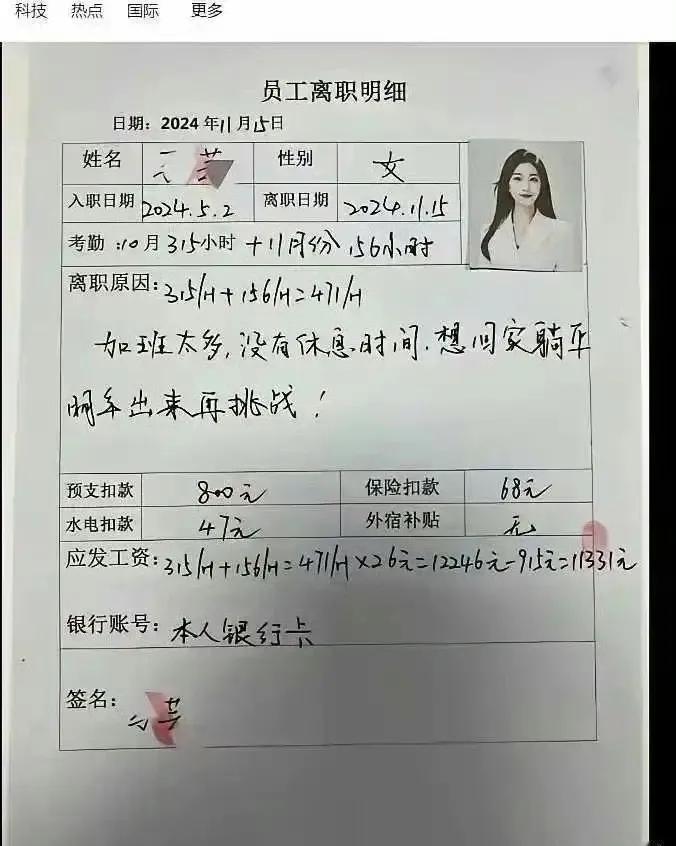 科技 热点 国际 更多
员工离职明细
日期：2024年11月15日
姓名 性别 女
入职日期 2024.5.2 离职日期 2024.11.15
考勤：10月315小时+11月份156小时
离职原因：315/H+156/H=471/H
加班太多，没有休息时间，想回家躺平
明年出来再挑战！
预支扣款 800元 保险扣款 68元
水电扣款 47元 外宿补贴 无
应发工资：315/H+156/H=471/H×26元=12246元-915元=11331元
银行账号：本人银行卡
签名：